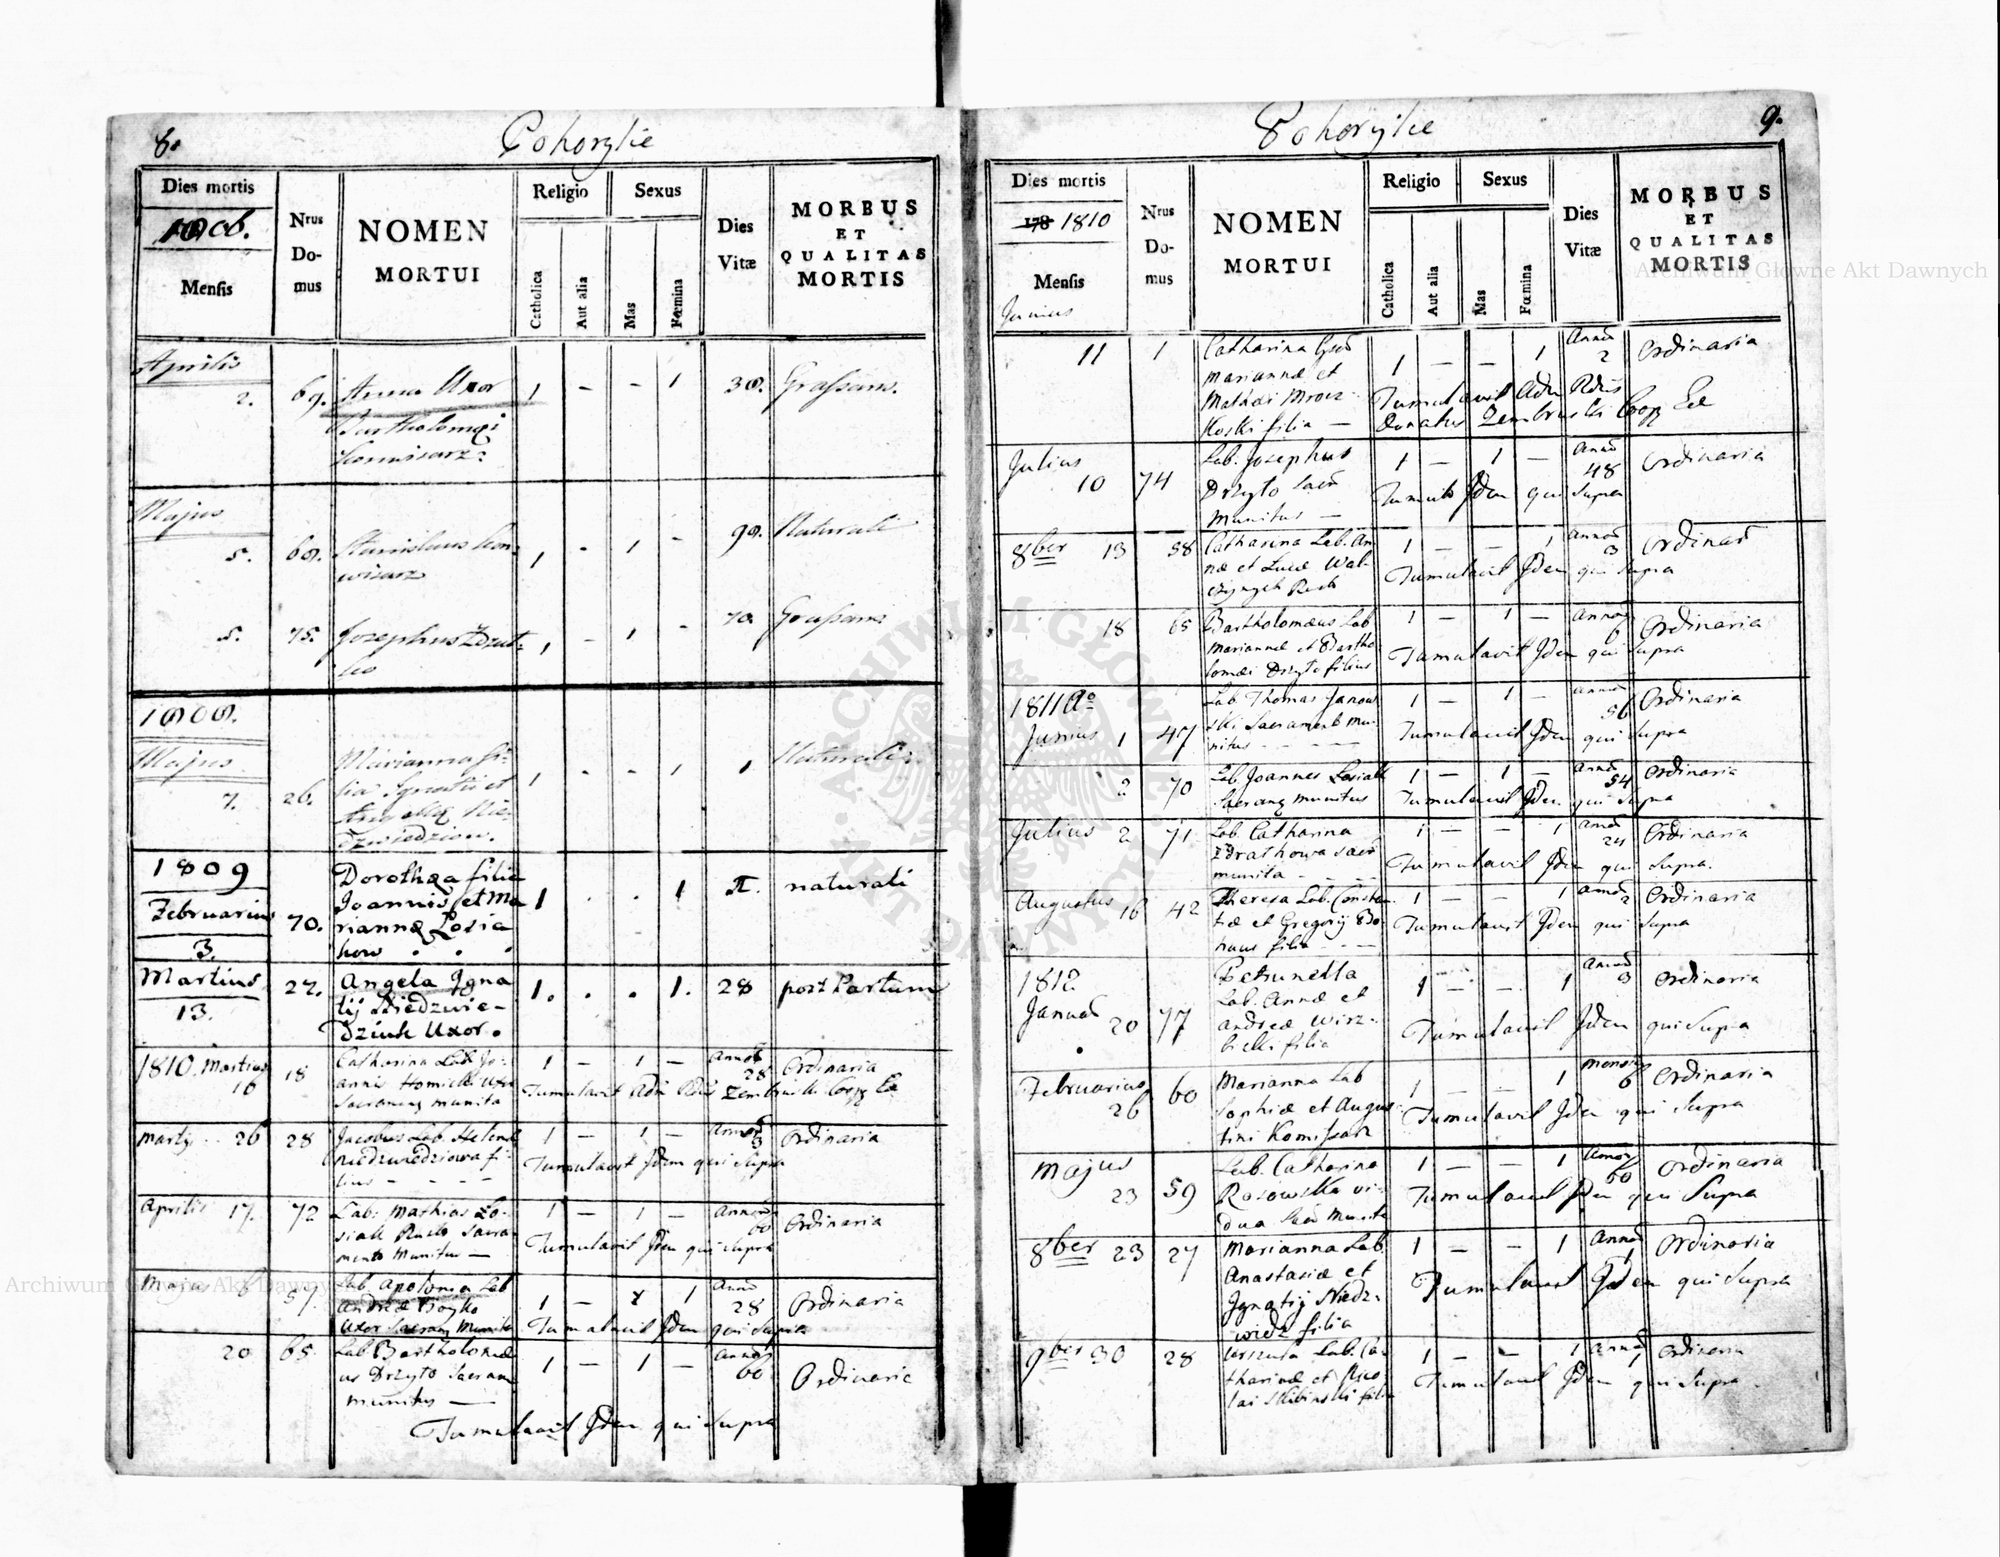 8.
Pohorylie
Dies mortis
Nrus Domus
NOMEN MORTUI
Religio
Sexus
Dies Vitæ
MORBUS ET QUALITAS MORTIS
Mensis
Catholica
Aut alia
Mas
Fœmina
Aprilis
2. 69. Anna Uxor 1 - - 1 30. Graſsans.
Bartholomæi
Majus
5. 69. Stanislaus 1 - 1 - 90. Naturali
5. 75. Josephus 1 - 1 - 70. Graſsans
Majus
7. 26. Marianna fi- 1 - - 1 1 Naturali
lia Ignatii et
1809
Dorothæa filia
Februarius 70. Joannis et Ma 1 . . 1 naturali
riannæ Losia
3. kow . . .
Martius 27. Angela Igna 1. . . 1. 28 post Partum
13. tij Niedzwie-
dziuk Uxor.
1810. Martius 18 Catharina Lab. Jo- 1 - 1 - Annor Ordinaria
16 annis Homicki Uxor 28
munita Tumulavit Adm Rdus Zembruski Coop
Martij 26 28 Jacobus Lab. Helenæ 1 - 1 - Annor 3 Ordinaria
Niedzwiedziowa fi- Tumulavit Idem qui Supra
lius - - - -
Aprilis 17. 72 Lab: Mathias Lo- 1 - 1 - Annor 60 Ordinaria
siak Sacra Tumulavit Idem qui Supra
mento Munitus —
Majus 6 57 Lab. Apolonia Lab 1 - 1 Anno 28 Ordinaria
Andreæ Boyko
Uxor Munita Tumulavit Idem qui Supra
20 65 Lab Bartholomæ 1 - 1 - Annor 60 Ordinaria
us Drzyto Sacram
munitus —
Tumulavit Idem qui Supra
9.
Pohorylie
Dies mortis
178 1810
Nrus Domus
NOMEN MORTUI
Religio
Sexus
Dies Vitæ
MORBUS ET QUALITAS MORTIS
Mensis
Catholica
Aut alia
Mas
Fœmina
Junius
11 1 Catharina 1 - - 1 Anno 2 Ordinaria
Mariannæ et
Mathæi Mrocz- Tumulavit Adm Rdus
koski filia — Donatus Zembruski Coop
Julius 10 74 Lab. Josephus 1 - 1 - Anno 48 Ordinaria
Drzyto Sacr Tumula Idem qui Supra
Munitus —
8ber 13 58 Catharina Lab. An 1 - - 1 Anno 3 Ordinar
næ et Lucæ Tumulavit Idem qui Supra
18 65 Bartholomæus Lab 1 - 1 - Anno 6 Ordinaria
Mariannæ et Bartho Tumulavit Idem qui Supra
lomæi Drzyto filius
1811 Ao Lab Thomas Janow 1 - 1 - Anno 56 Ordinaria
Junius 1 47 ski Sacrament mu- Tumulavit Idem qui Supra
nitus - - - -
2 70 Lab. Joannes Losiak 1 - 1 - Anno 54 Ordinaria
Sacram munitus Tumulavit Idem qui Supra
Julius 2 71 Lab. Catharina 1 - - 1 Anno 24 Ordinaria
Zdrathowa Sacr Tumulavit Idem qui Supra.
munita - - -
Augustus 16 42 Theresa Lab. Constan- 1 - - 1 Anno 2 Ordinaria
tiæ et Gregorij Bo- Tumulavit Idem qui Supra
hnus filia - - -
1812. Petrunella 1 - - 1 Anno 3 Ordinaria
Januar 20 77 Lab. Annæ et
Andreæ Wirz- Tumulavit Idem qui Supra
bicki filia
Februarius 26 60 Marianna Lab 1 - - 1 Mensi 6 Ordinaria
Sophiæ et Augus- Tumulavit Idem qui Supra
tini Komiſsar
Majus 23 59 Lab. Catharina 1 - - 1 Annor 60 Ordinaria
Rosowska vi- Tumulavit Idem qui Supra
dua Sacr Munita
8ber 23 27 Marianna Lab. 1 - - 1 Anno 1 Ordinaria
Anastasiæ et
Ignatij Niedz- Tumulavit Idem qui Supra
wiedz filia
9ber 30 28 Urszula Lab. Ca- 1 - - 1 Anno 1 Ordinaria
tharinæ et Nico- Tumulavit Idem qui Supra
lai Skibinski filia
Archiwum Główne Akt Dawnych
Archiwum Główne Akt Dawnych
ARCHIWUM GŁÓWNE AKT DAWNYCH